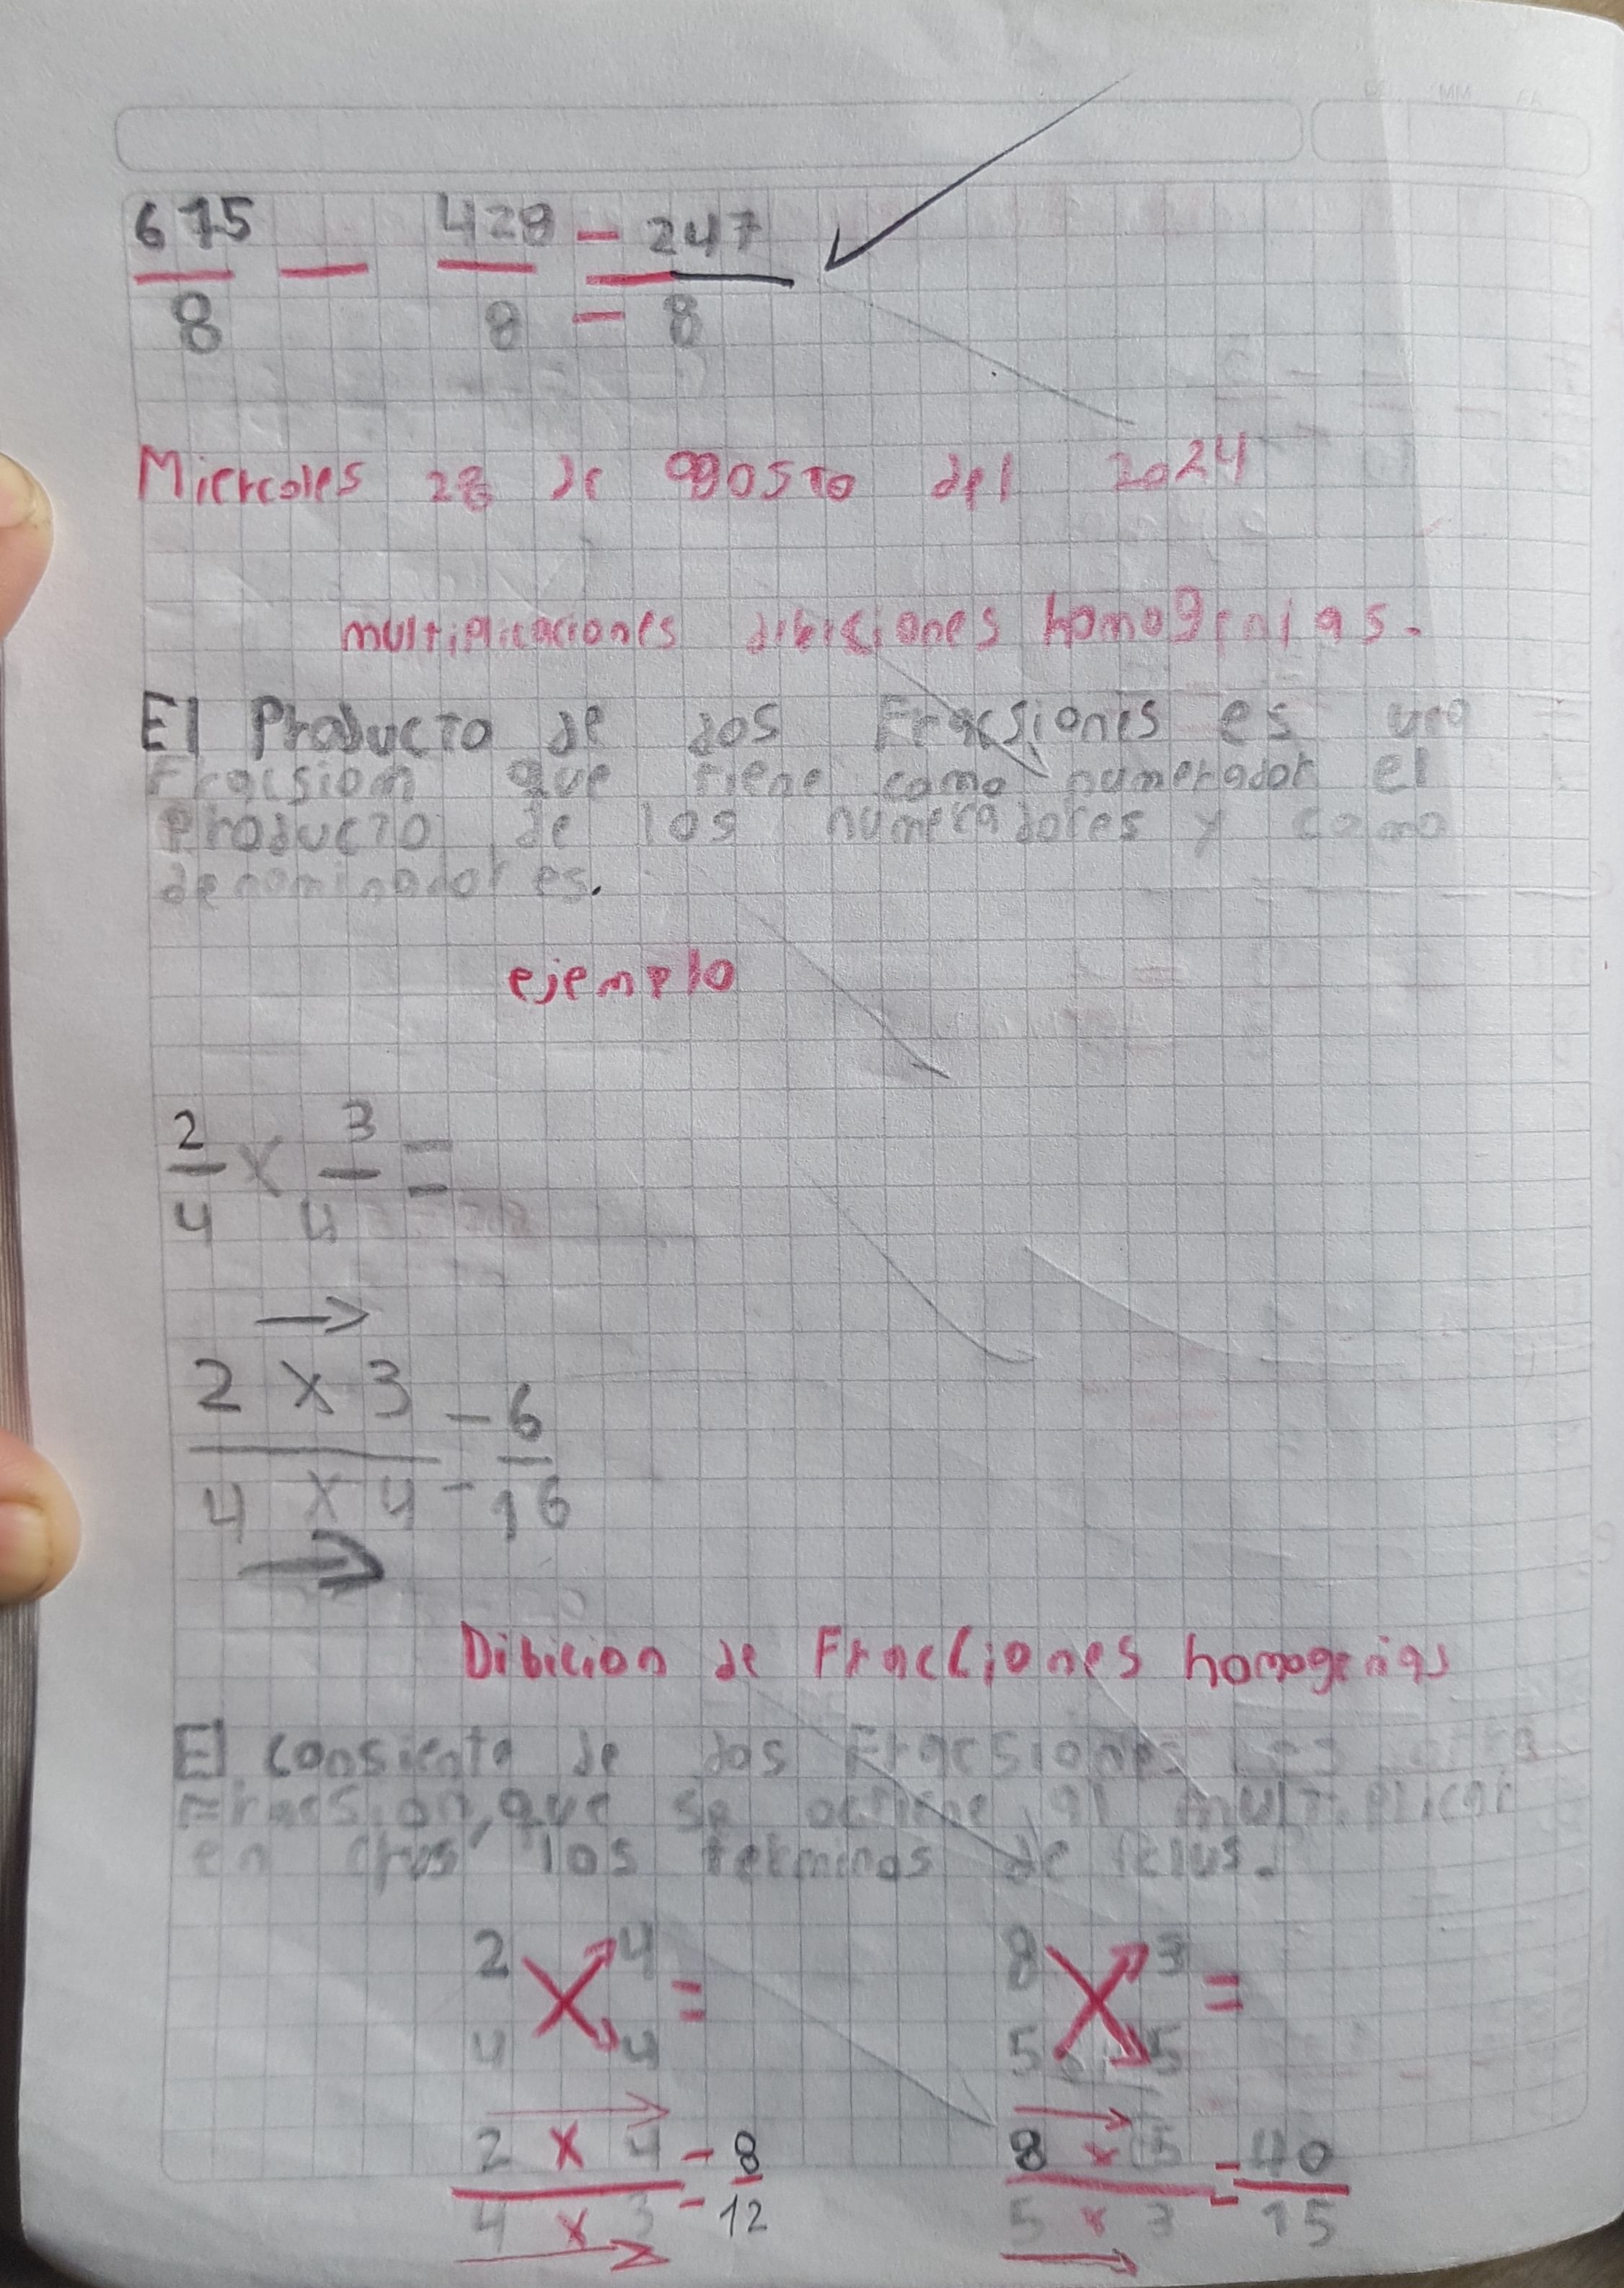 675/8 — 428/8 = 247/8
Miercoles 28 de agosto del 2024
multiplicaciones dibiciones homogenias.
El Producto de dos Fracsiones es una
Fracsion que tiene como numerador el
Producto de los numeradores y como
denominadores.
ejemplo
2/4 x 3/4 =
2 x 3 - 6
4 x 4 - 16
Dibicion de Fracciones homogenias
El consiente de dos Fracsiones es otra
Fracsion, que se octiene al multiplicar
en crus los terminos de
2 4 = 8 3 =
4 4 5 5
2 x 4 - 8 8 x 5 - 40
4 x 3 - 12 5 x 3 - 15